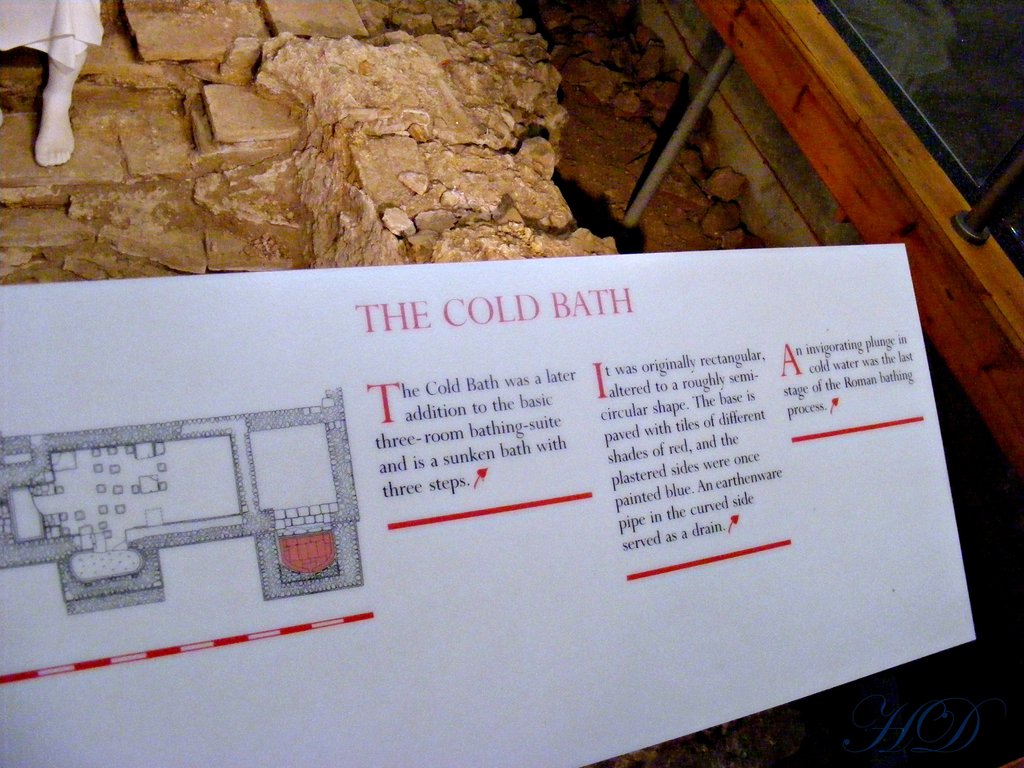 THE COLD BATH
The Cold Bath was a later
addition to the basic
three-room bathing-suite
and is a sunken bath with
three steps.
It was originally rectangular,
altered to a roughly semi-
circular shape. The base is
paved with tiles of different
shades of red, and the
plastered sides were once
painted blue. An earthenware
pipe in the curved side
served as a drain.
An invigorating plunge in
cold water was the last
stage of the Roman bathing
process.
HD